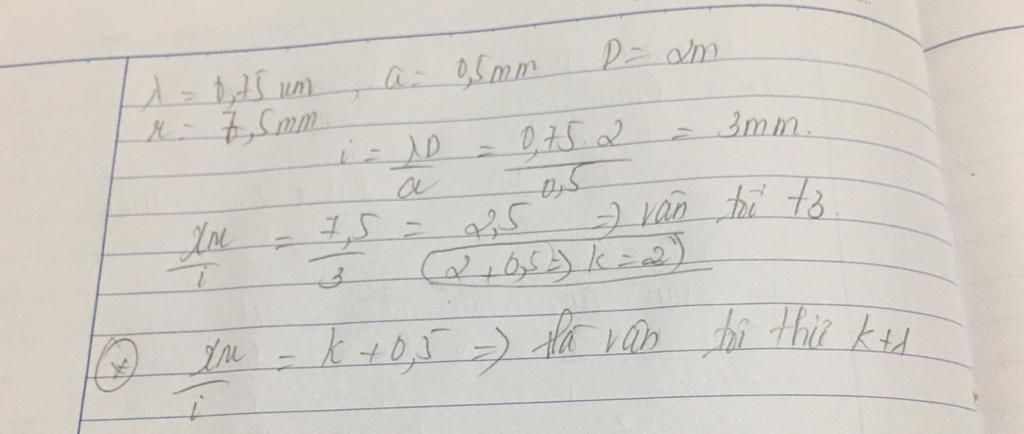 λ = 0,75 um , a = 0,5mm D = 2m
x = 7,5mm
i = λD/a = 0,75.2/0,5 = 3mm.
xM/i = 7,5/3 = 2,5 => vân tối t3
(2+0,5 => k=2)
* xM/i = k+0,5 => là vân tối thứ k+1